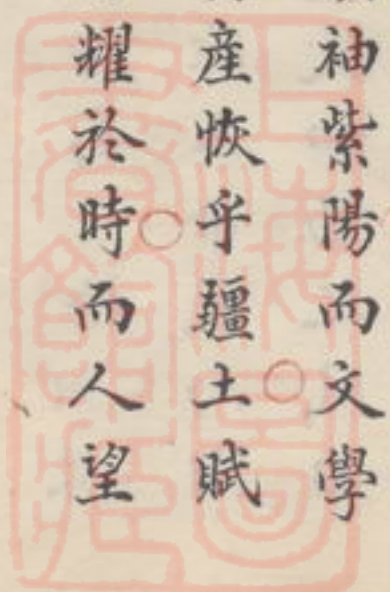 袖紫陽而文學
產恢乎疆土賦
耀於時而人望